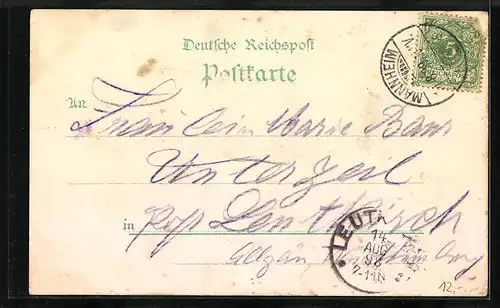 Deutsche Reichspost
Postkarte
5
MANNHEIM
An Fräulein Marie Baur
Unterzeil
in Post Leutkirch
Allgäu, Württemberg
LEUTK
14
AUG
98
7-11N
12,-